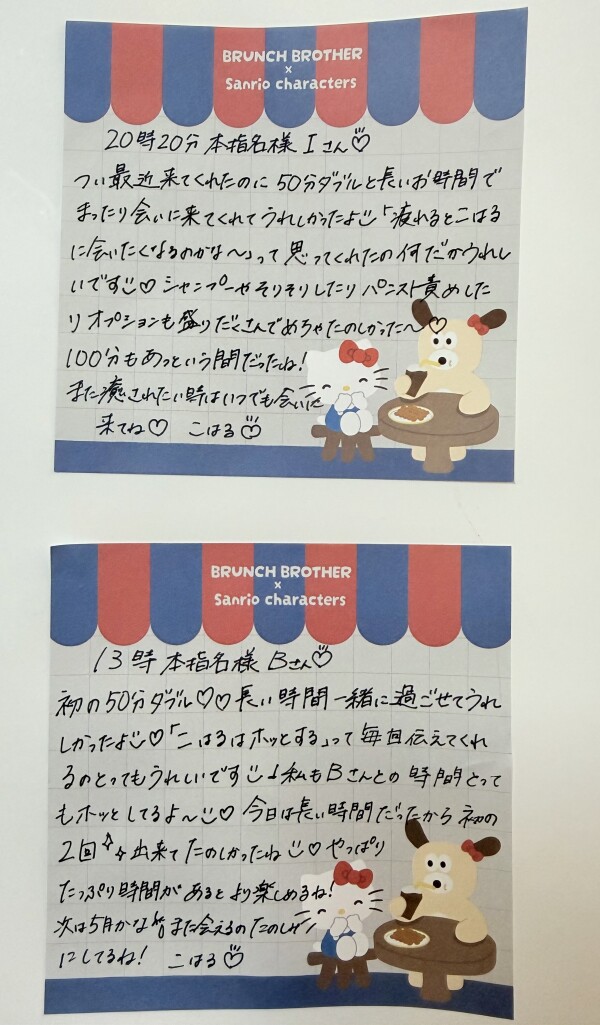 BRUNCH BROTHER
×
Sanrio characters
20時20分 本指名様 Iさん♡
つい最近来てくれたのに50分ダブルと長いお時間で
まったり会いに来てくれてうれしかったよ「疲れるとこはる
に会いたくなるのかな〜」って思ってくれたの何だかうれし
いです♡ シャンプーやそりそりしたりパンスト責めした
りオプションも盛りだくさんでめちゃたのしかった〜♡
100分もあっという間だったね!
また癒されたい時はいつでも会いに
来てね♡ こはる
BRUNCH BROTHER
×
Sanrio characters
13時 本指名様 Bさん♡
初の50分ダブル♡♡長い時間一緒に過ごせてうれ
しかったよ♡「こはるはホッとする」って毎回伝えてくれ
るのとってもうれしいです 私もBさんとの時間とって
もホッとしてるよ〜♡ 今日は長い時間だったから初の
2回 出来てたのしかったね♡ やっぱり
たっぷり時間があるとより楽しめるね!
次は5月かな また会えるのたのしみ
にしてるね! こはる